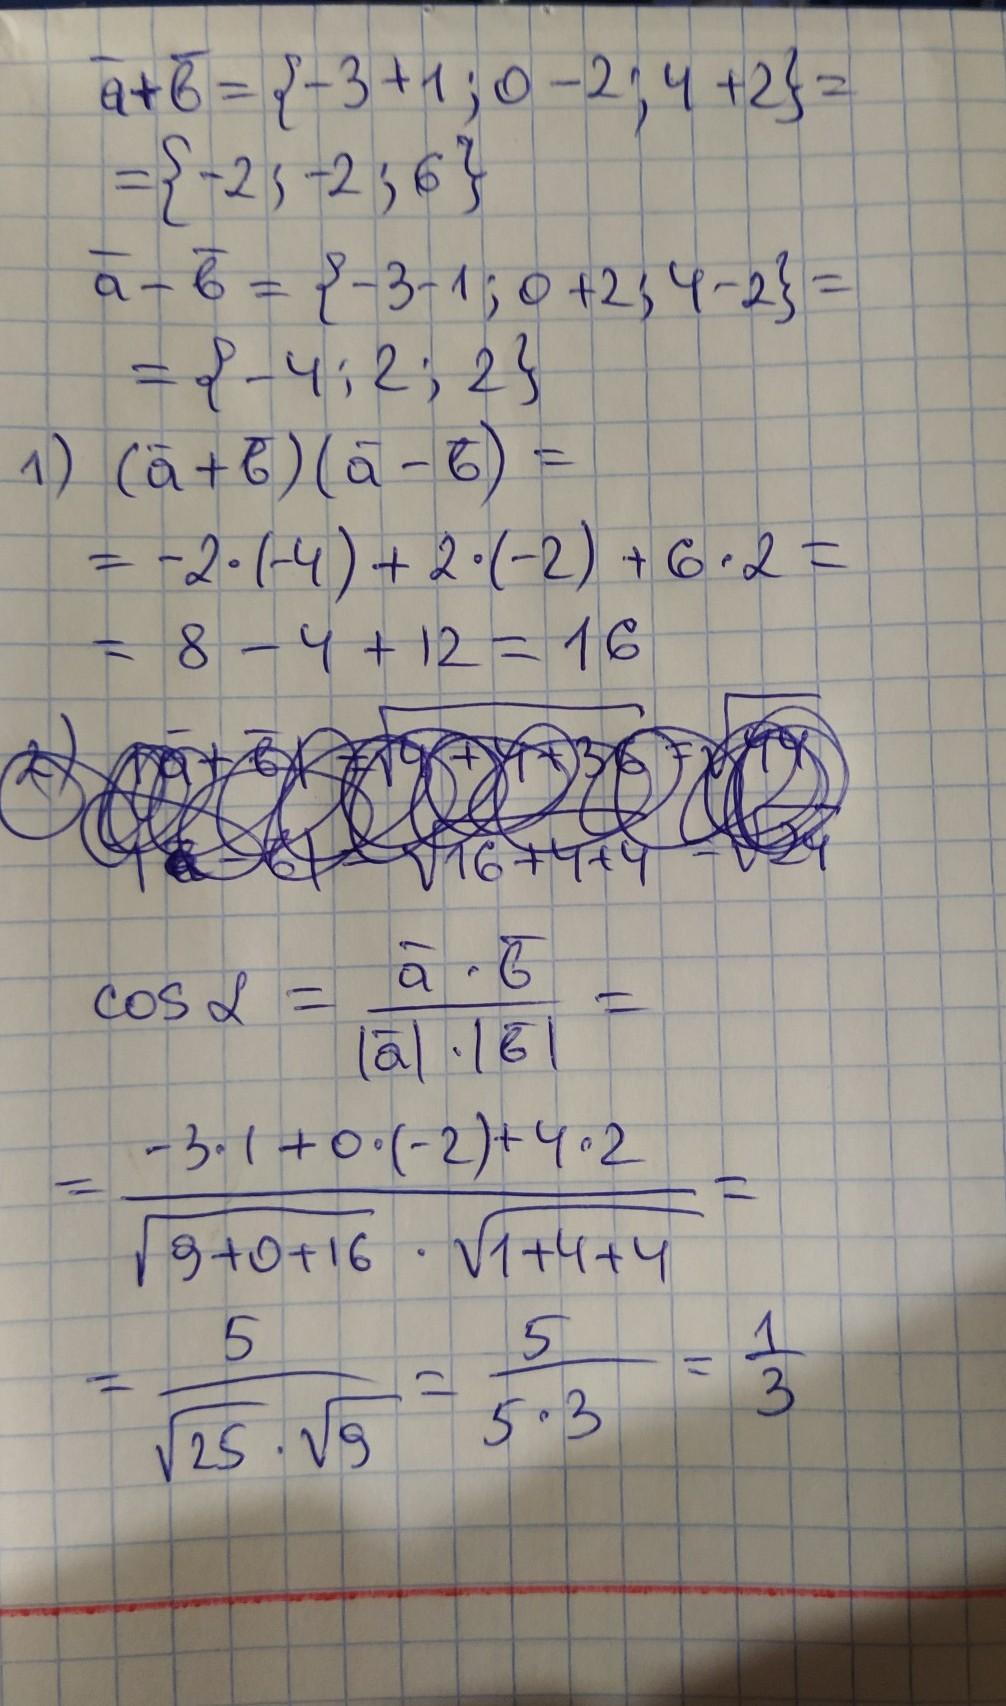 a̅+b̅ = {-3+1; 0-2; 4+2} =
= {-2; -2; 6}
a̅ - b̅ = {-3-1; 0+2; 4-2} =
= {-4; 2; 2}
1) (a̅+b̅)(a̅-b̅) =
= -2·(-4) + 2·(-2) + 6·2 =
= 8 - 4 + 12 = 16
2) |a̅+b̅| = √4+4+36 = √44
|a̅-b̅| = √16+4+4 = √24
cos α = a̅·b̅ / |a̅|·|b̅| =
= -3·1+0·(-2)+4·2 / √9+0+16 · √1+4+4 =
= 5 / √25·√9 = 5 / 5·3 = 1/3